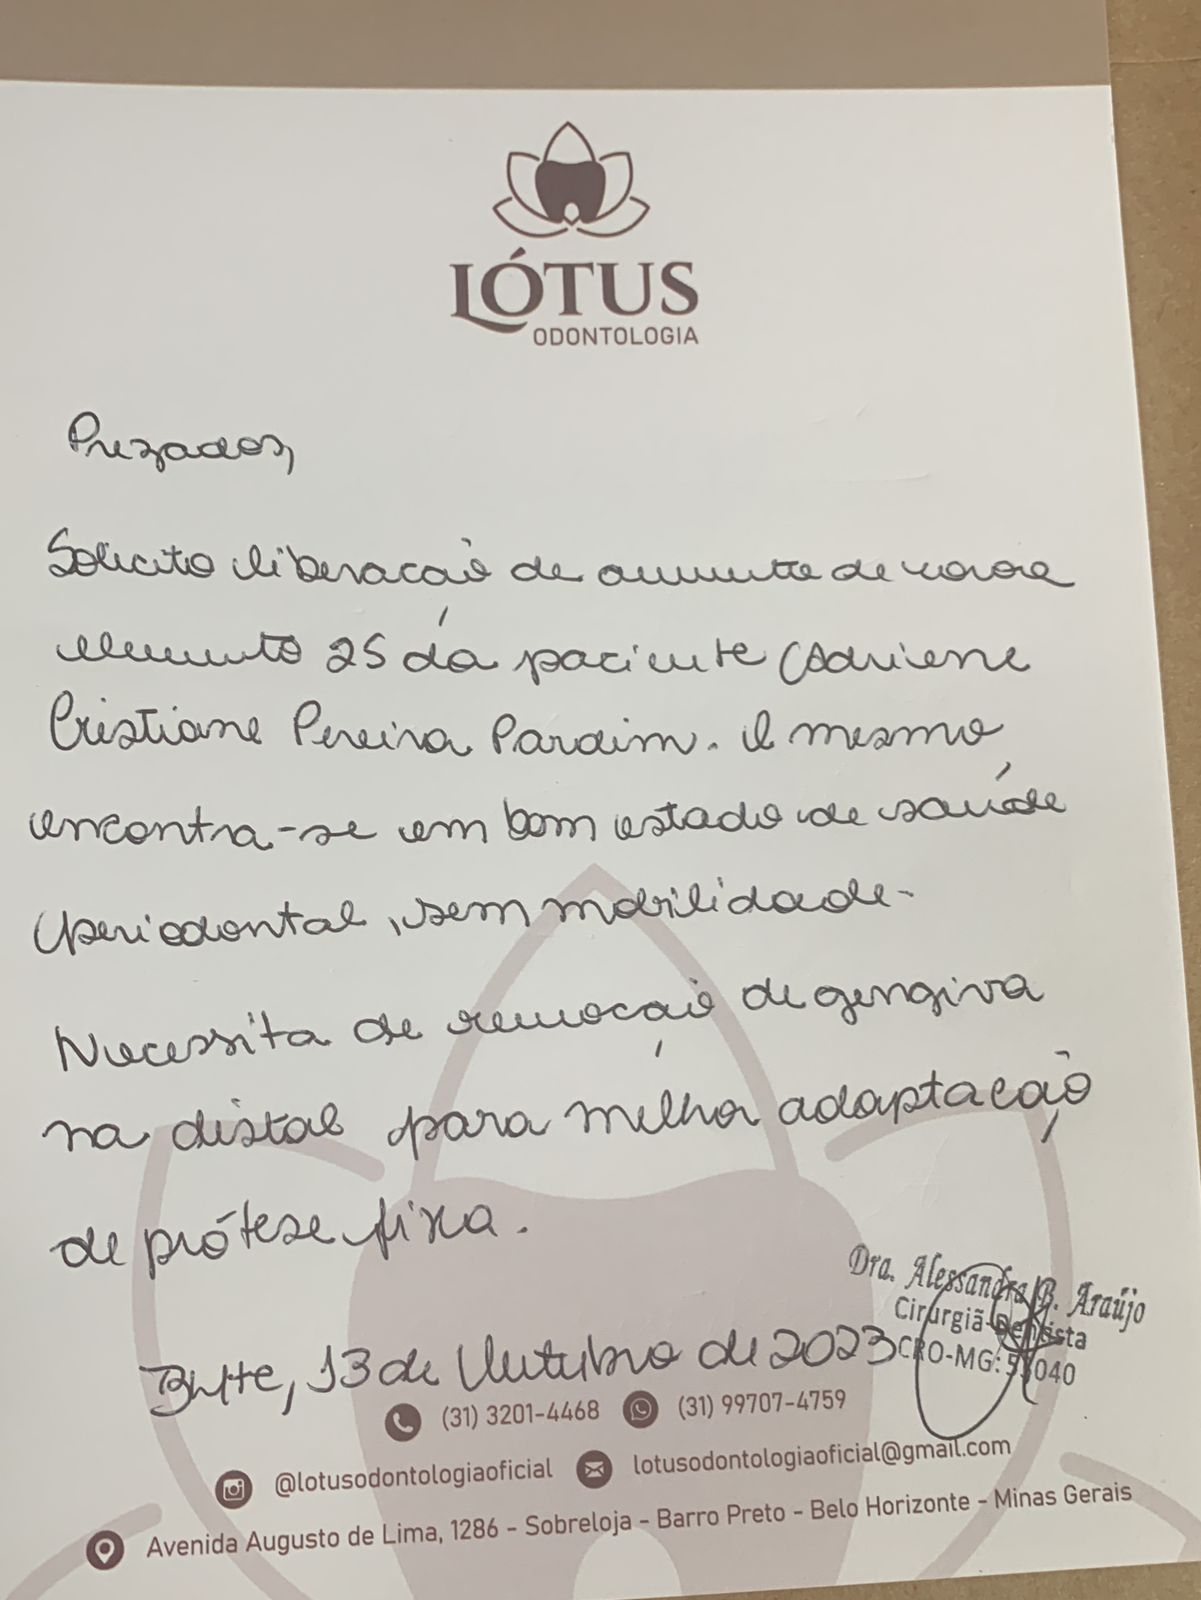 LÓTUS
ODONTOLOGIA
Prezados,
Solicito liberação de aumento de coroa
elemento 25 da paciente Adriene
Cristiane Pereira Pardim. O mesmo
encontra-se em bom estado de saúde
periodontal, sem mobilidade.
Necessita de remoção de gengiva
na distal para melhor adaptação
de prótese fixa.
Dra. Alessandra B. Araújo
Cirurgiã-Dentista
CRO-MG:
Bhte, 13 de Outubro de 2023
(31) 3201-4468 (31) 99707-4759
@lotusodontologiaoficial lotusodontologiaoficial@gmail.com
Avenida Augusto de Lima, 1286 - Sobreloja - Barro Preto - Belo Horizonte - Minas Gerais